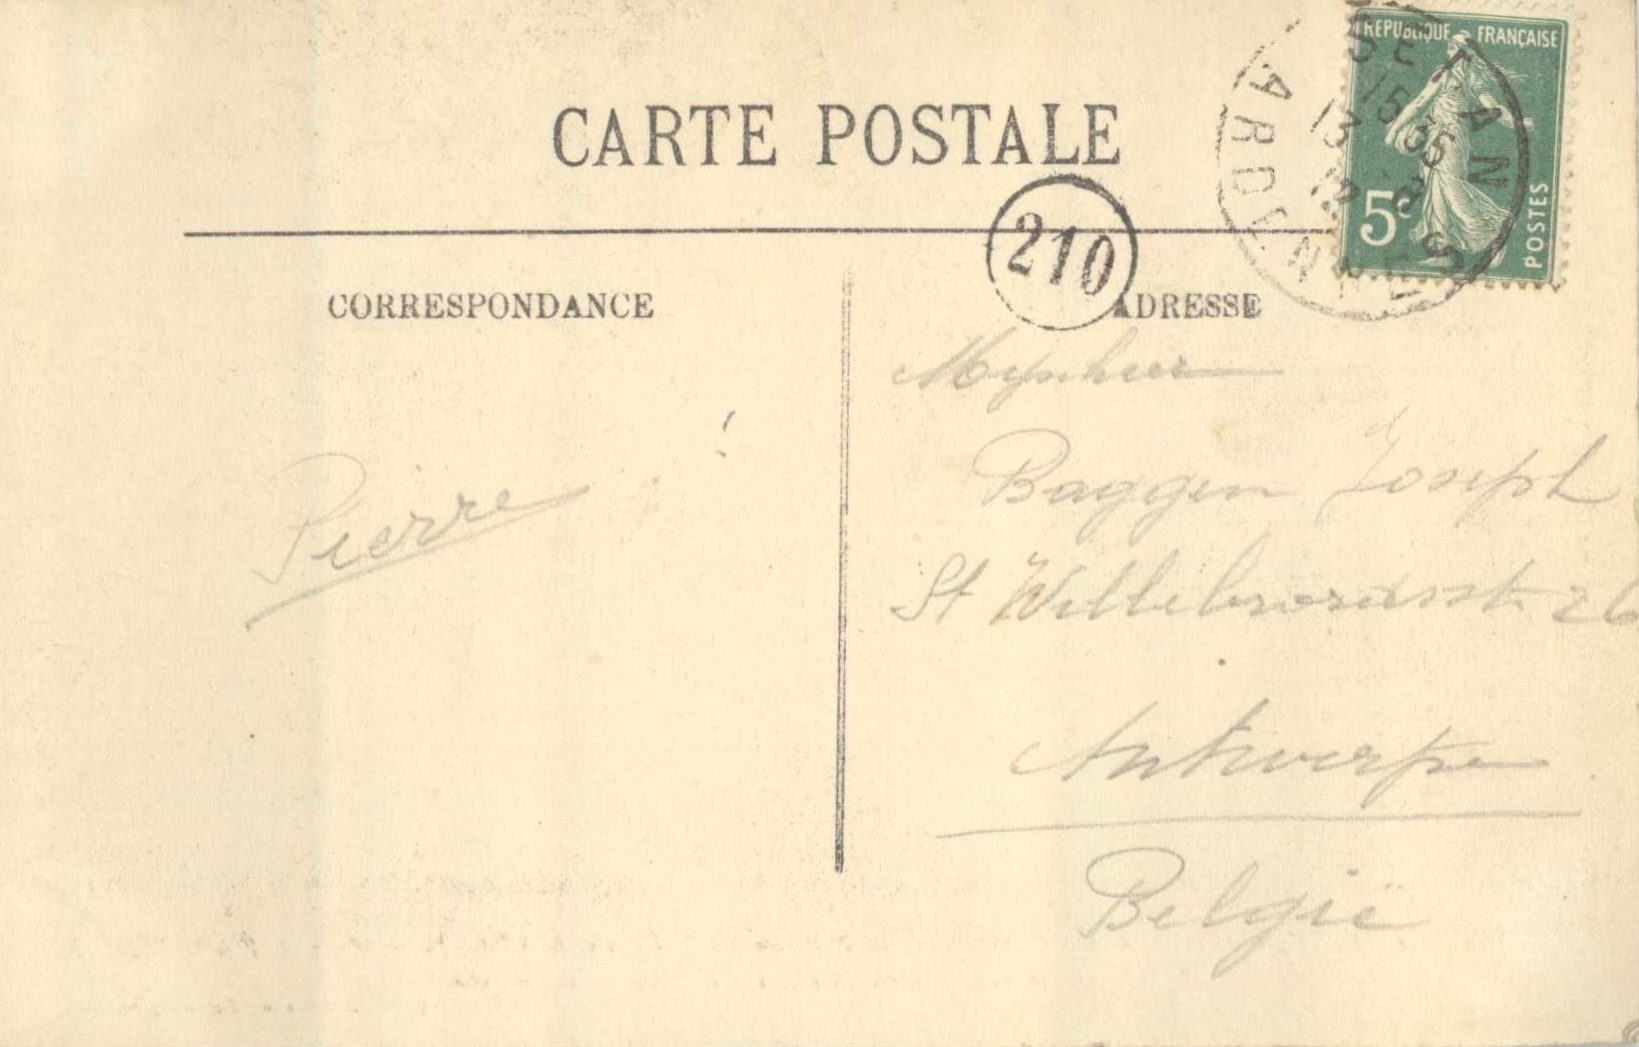 REPUBLIQUE FRANÇAISE
5c
POSTES
SEDAN
15 35
13 -8
12
ARDENNES
CARTE POSTALE
210
CORRESPONDANCE
ADRESSE
Mynheer
Baggen Joseph
St Willebrordusstr 26
Antwerpen
België
Pierre